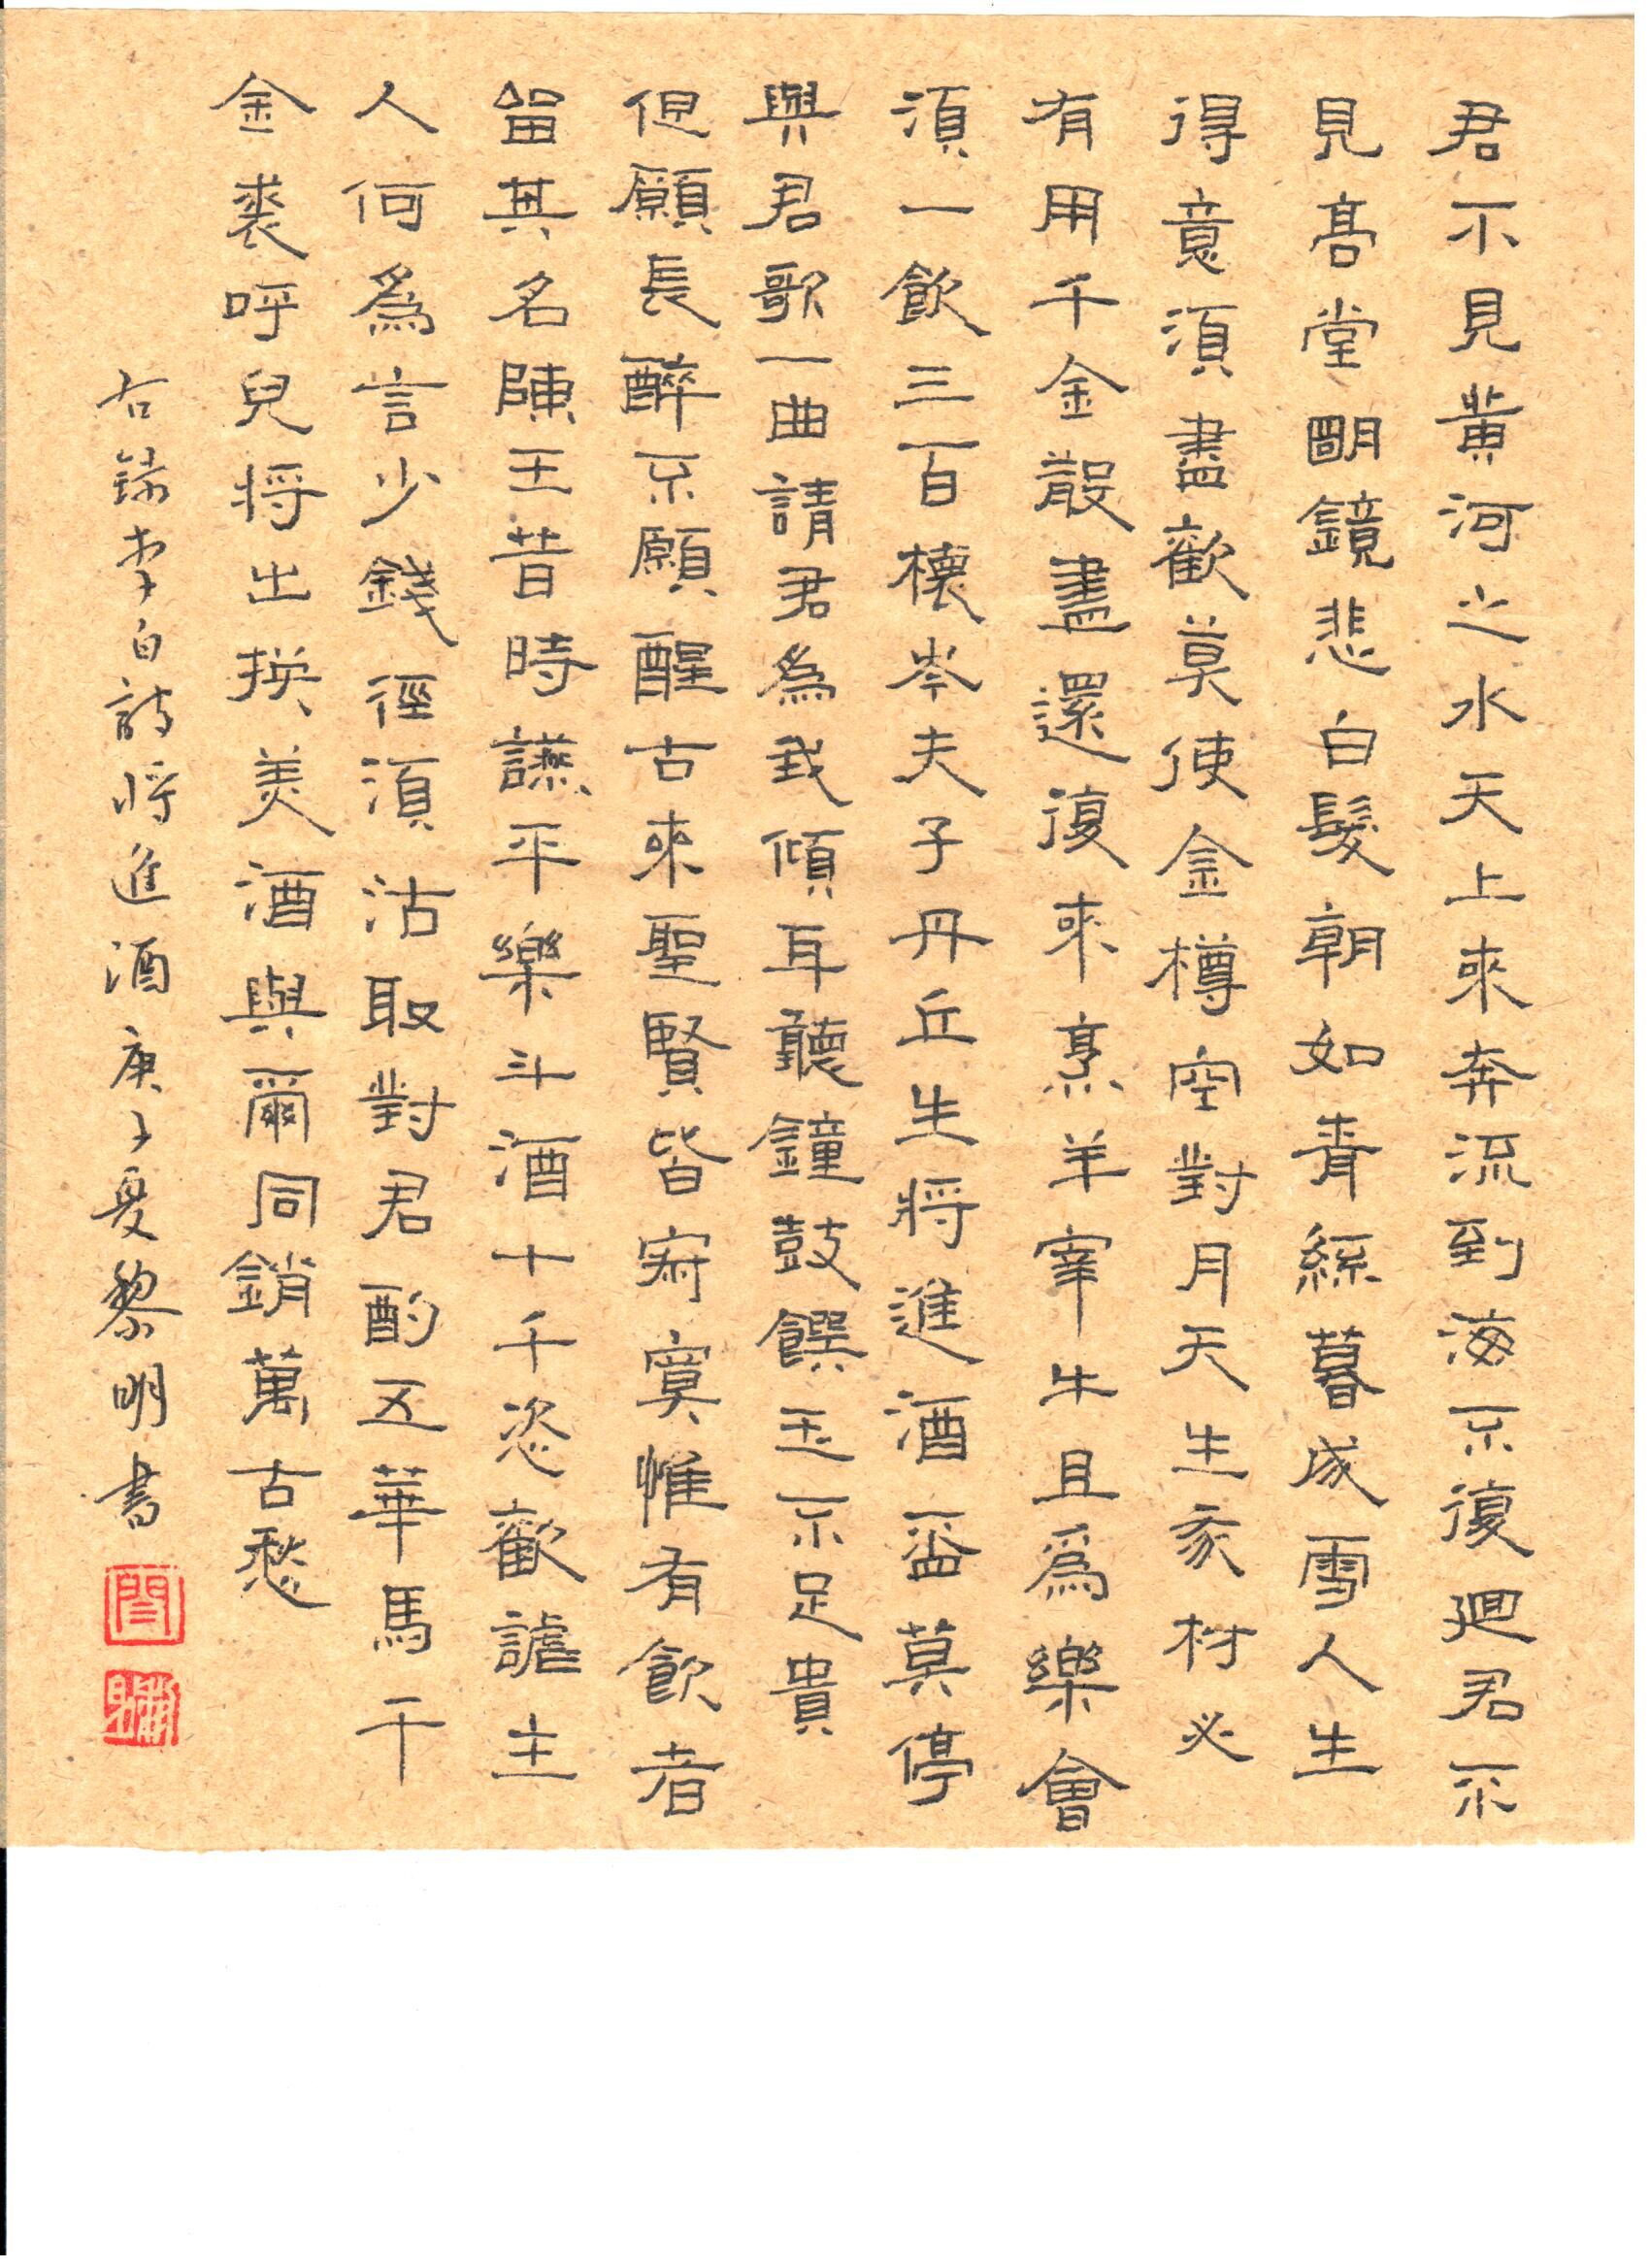 君不見黃河之水天上來奔流到海不復迴君不
見高堂明鏡悲白髮朝如青絲暮成雪人生
得意須盡歡莫使金樽空對月天生我材必
有用千金散盡還復來烹羊宰牛且爲樂會
須一飲三百杯岑夫子丹丘生將進酒杯莫停
與君歌一曲請君爲我傾耳聽鐘鼓饌玉不足貴
但願長醉不願醒古來聖賢皆寂寞惟有飲者
留其名陳王昔時讌平樂斗酒十千恣歡謔主
人何爲言少錢徑須沽取對君酌五華馬千
金裘呼兒將出換美酒與爾同銷萬古愁
右錄李白詩將進酒庚子夏黎明書